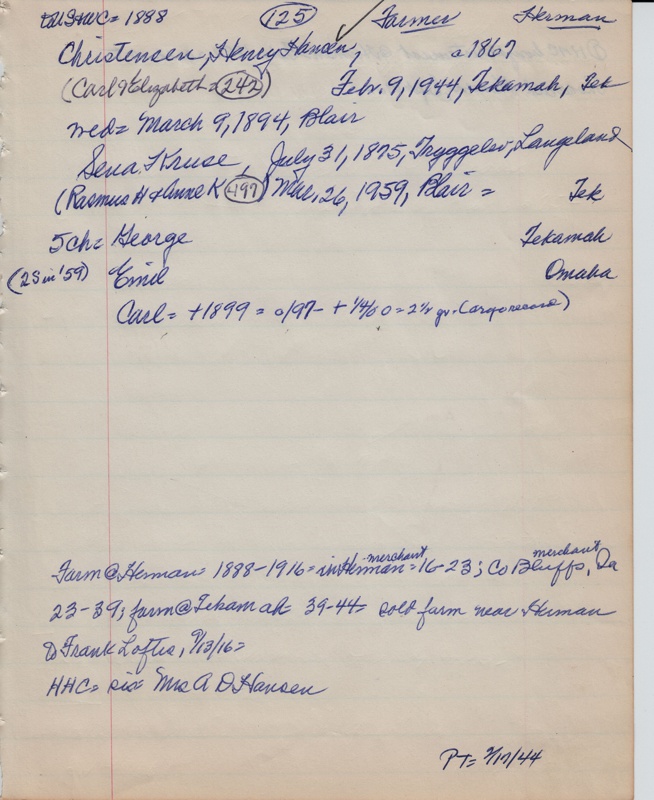 to US & WC = 1888 (125) Farmer Herman
Christensen, Henry Hansen, o 1867
(Carl & Elizabeth = 242) Febr. 9, 1944, Tekamah, Tek
wed = March 9, 1894, Blair
Sena Kruse, July 31, 1875, Tryggelev, Langeland
(Rasmus H & Anne K 197) Mar. 26, 1959, Blair = Tek
5 ch = George Tekamah
(2S in '59) Emil Omaha
Carl = +1899 = o/97 - + 1/4/00 = 2 1/2 yr. (Argo record)
merchant merchant
Farm @ Herman = 1888-1916 = in Herman = 16-23; Co Bluffs, Ia
23-39; farm @ Tekamah = 39-44 = sold farm near Herman
to Frank Loftis, 9/13/16 =
HHC = sis = Mrs A D Hansen
PT = 2/17/44